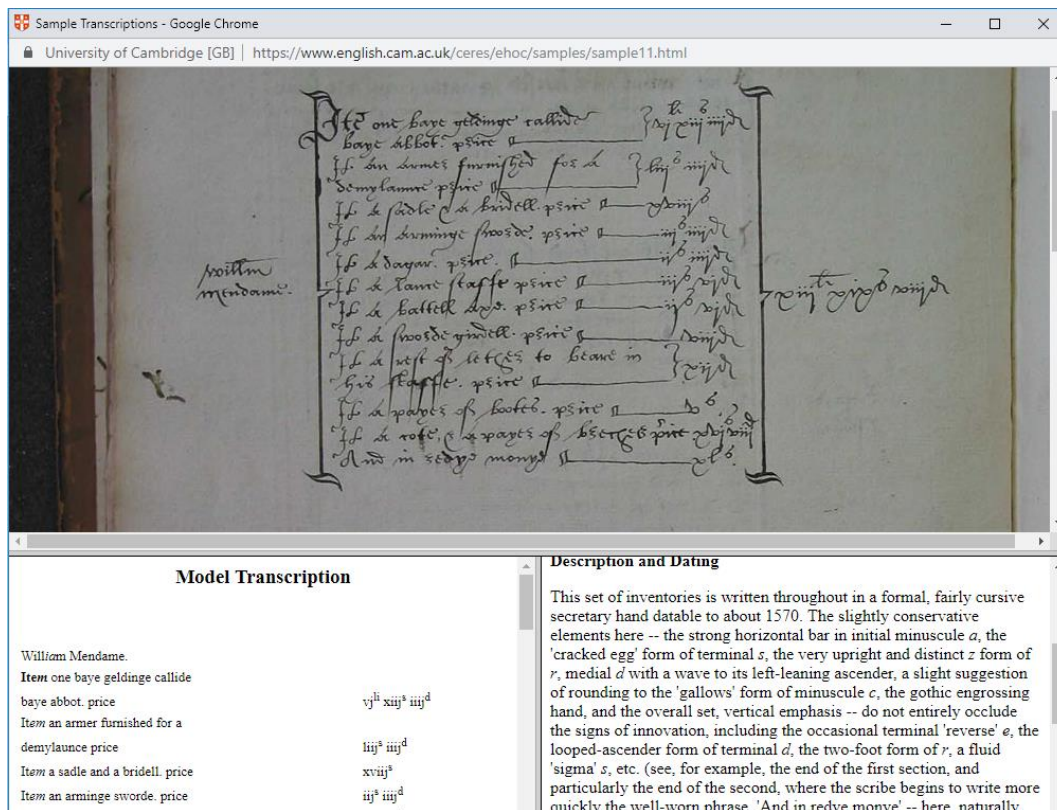 Sample Transcriptions - Google Chrome
University of Cambridge [GB] | https://www.english.cam.ac.uk/ceres/ehoc/samples/sample11.html
Itē one baye geldinge callide
baye abbot. price vj li xiij s iiij d
It an armer furnished for a
demylaunce price liij s iiij d
It a sadle & a bridell. price xviij s
It an arminge sworde. price iij s iiij d
It a dagar. price. ij s iiij d
It a lance staffe price iij s vj d
It a battell axe. price ij s vj d
It a sworde girdell. price viij d
It a rest of lether to beare in
his staffe. price xij d
It a payer of bootes. price v s.
It a cote, & a payer of breches price xvj s viij d
And in redye monye xl s.
willm
mendame.
xiij li xix s viij d
Model Transcription
William Mendame.
Item one baye geldinge callide
baye abbot. price vj li xiij s iiij d
Item an armer furnished for a
demylaunce price liij s iiij d
Item a sadle and a bridell. price xviij s
Item an arminge sworde. price iij s iiij d
Description and Dating
This set of inventories is written throughout in a formal, fairly cursive
secretary hand datable to about 1570. The slightly conservative
elements here -- the strong horizontal bar in initial minuscule a, the
'cracked egg' form of terminal s, the very upright and distinct z form of
r, medial d with a wave to its left-leaning ascender, a slight suggestion
of rounding to the 'gallows' form of minuscule c, the gothic engrossing
hand, and the overall set, vertical emphasis -- do not entirely occlude
the signs of innovation, including the occasional terminal 'reverse' e, the
looped-ascender form of terminal d, the two-foot form of r, a fluid
'sigma' s, etc. (see, for example, the end of the first section, and
particularly the end of the second, where the scribe begins to write more
quickly the well-worn phrase, 'And in redye monye' -- here, naturally